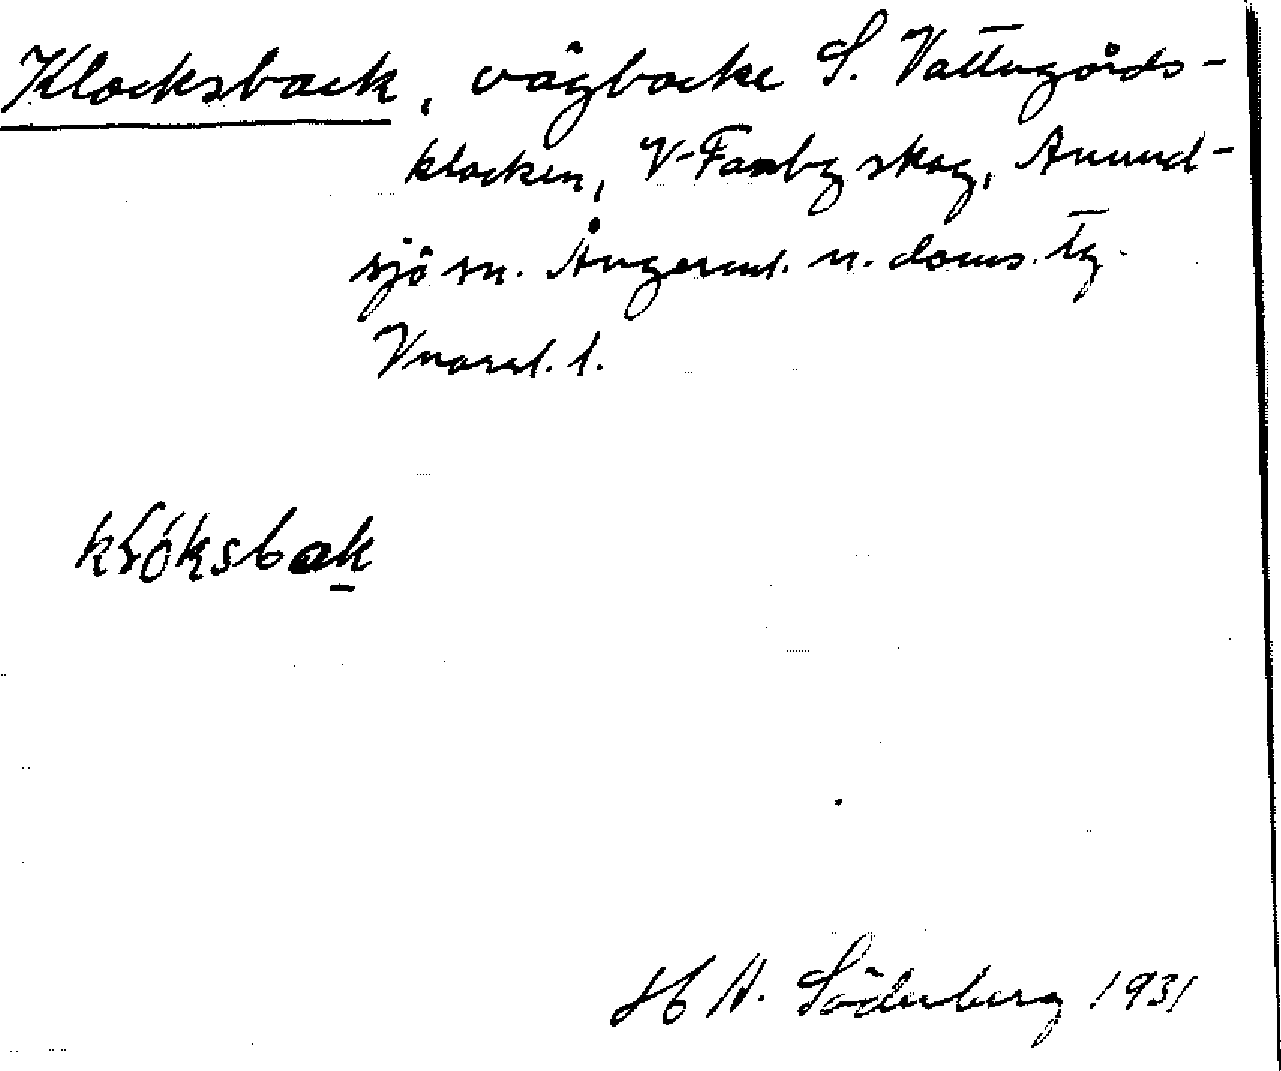 Klocksback, vägbacke S. Vattugårds-
klocken, V-Fanby skog, Anund-
sjö sn. Ångerml. n. doms. tg.
Vnorrl. l.
klóksbak
H A. Söderberg 1931